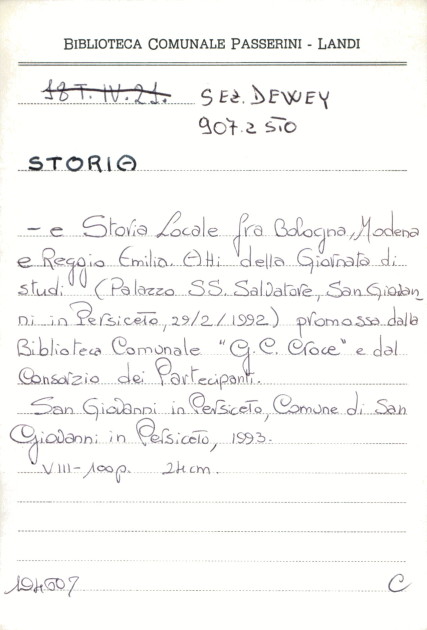 BIBLIOTECA COMUNALE PASSERINI - LANDI
18 T. IV. 21. SEZ. DEWEY
907.2 STO
STORIA
- e Storia Locale fra Bologna, Modena
e Reggio Emilia. Atti della Giornata di
studi (Palazzo SS. Salvatore, San Giovan
ni in Persiceto, 29/2/1992) promossa dalla
Biblioteca Comunale "G. C. Croce" e dal
Consorzio dei Partecipanti.
San Giovanni in Persiceto, Comune di San
Giovanni in Persiceto, 1993.
VIII-100p. 24cm.
194607 C